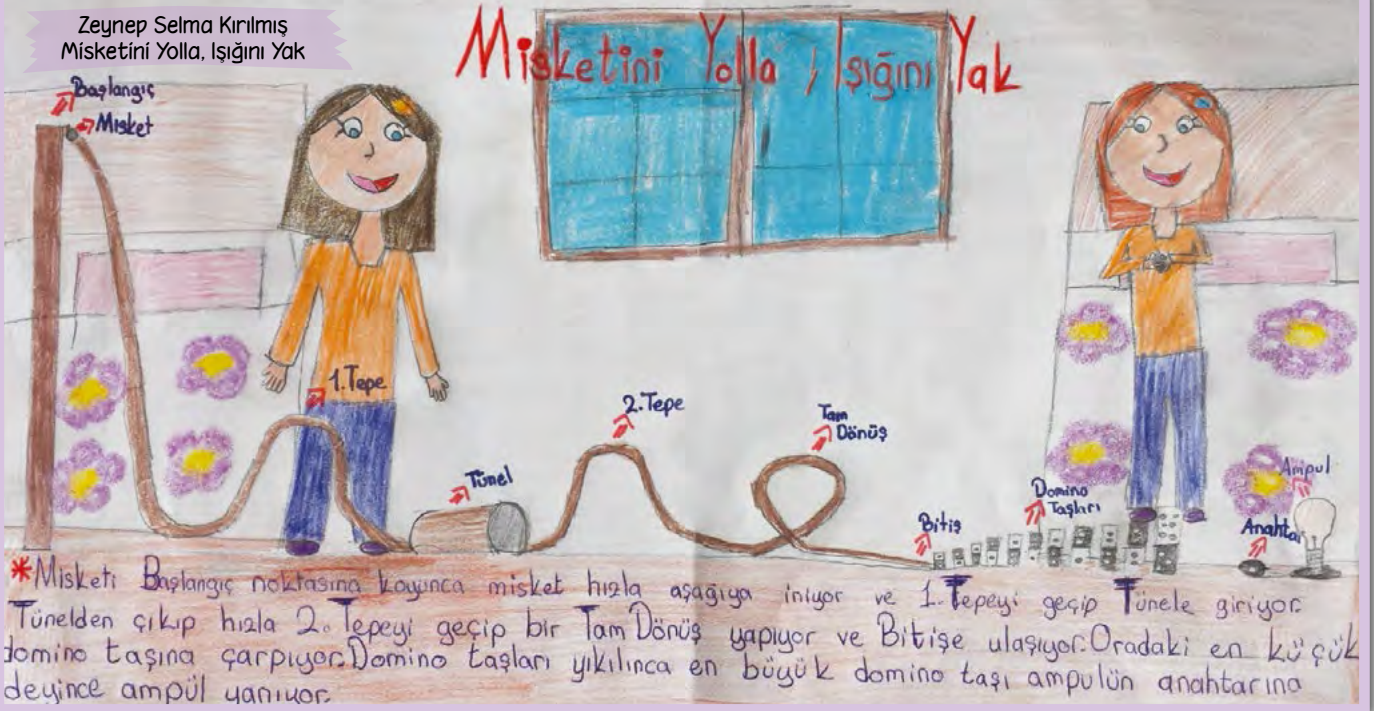 Zeynep Selma Kırılmış
Misketini Yolla, Işığını Yak
Misketini Yolla, Işığını Yak
Başlangıç
Misket
1.Tepe
Tünel
2.Tepe
Tam
Dönüş
Bitiş
Domino
Taşları
Anahtar
Ampul
*Misketi Başlangıç noktasına koyunca misket hızla aşağıya iniyor ve 1.Tepeyi geçip Tünele giriyor.
Tünelden çıkıp hızla 2.Tepeyi geçip bir Tam Dönüş yapıyor ve Bitişe ulaşıyor.Oradaki en küçük
domino taşına çarpıyor.Domino taşları yıkılınca en büyük domino taşı ampulün anahtarına
deyince ampül yanıyor.